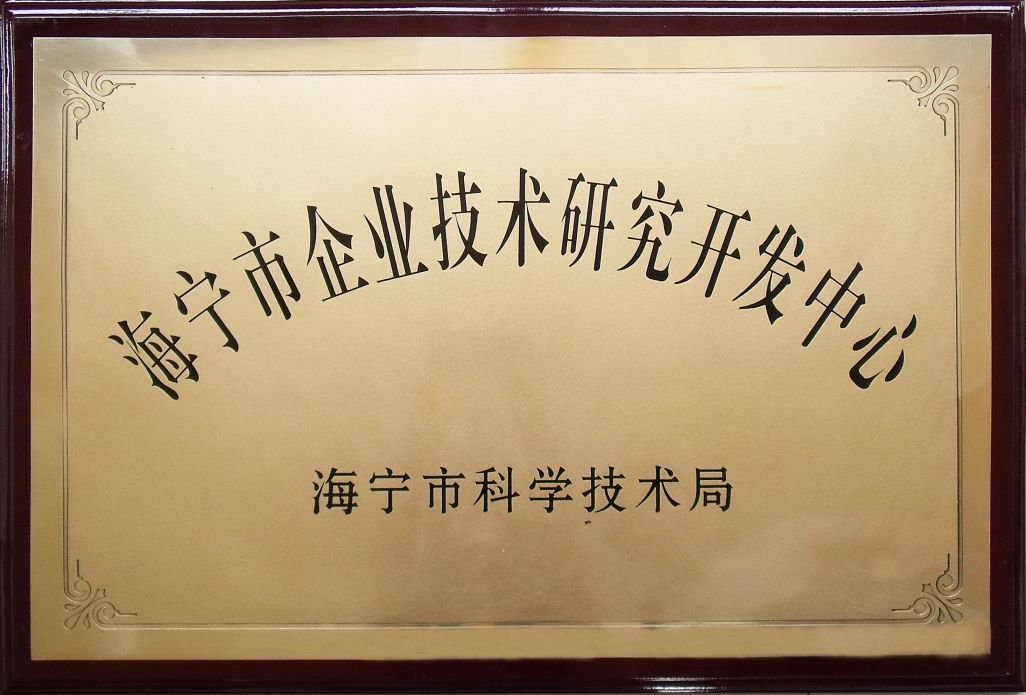 海宁市企业技术研究开发中心
海宁市科学技术局